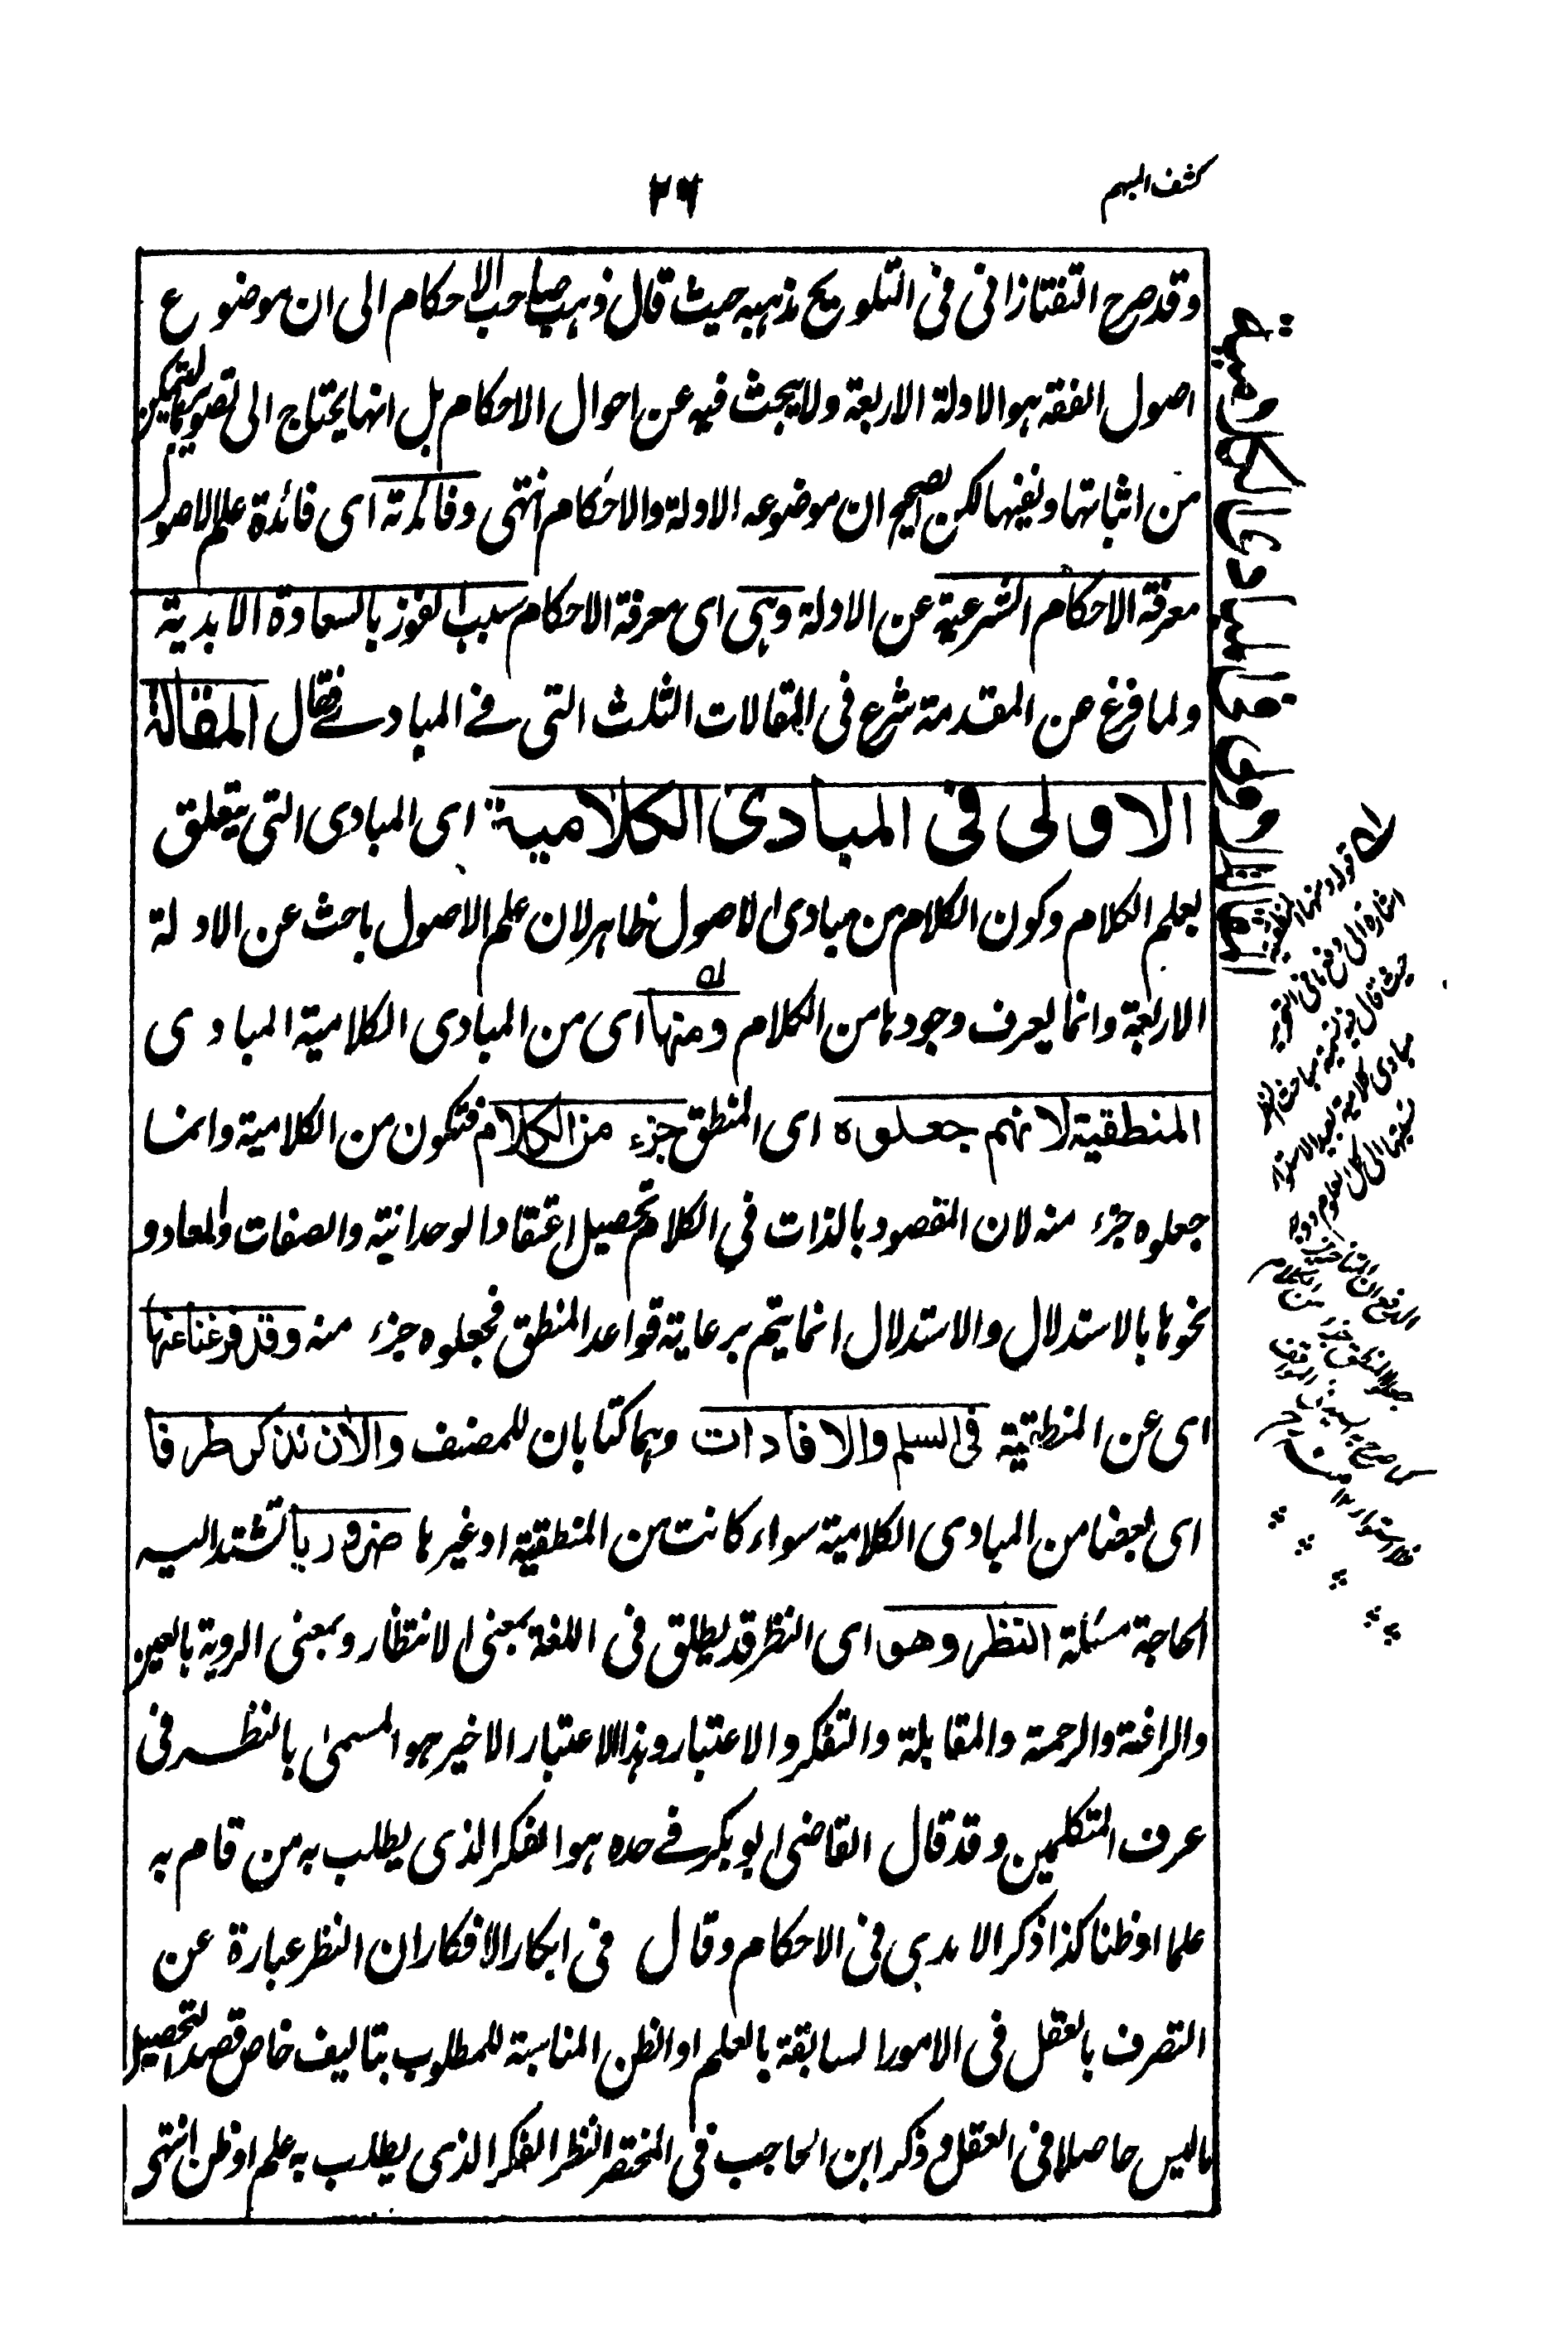 كشف المبهم
٢٦
وقد صرح التفتازانى فى التلويح بذهبه حيث قال ذهب صاحب الاحكام الى ان موضوع
اصول الفقه هو الادلة الاربعة ولا يبحث فيه عن احوال الاحكام بل انما يحتاج الى تصورها ليتمكن
من اثباتها ونفيها لكن الصحيح ان موضوعه الادلة والاحكام انتهى وفائدته اى فائدة علم الاصول
معرفة الاحكام الشرعية عن الادلة وهى اى معرفة الاحكام سبب الفوز بالسعادة الابدية
ولما فرغ من المقدمة شرع فى المقالات الثلث التى فے المبادے فقال المقالة
الاولى فى المبادى الكلامية اى المبادى التى يتعلق
بعلم الكلام وكون الكلام من مبادى الاصول ظاهر لان علم الاصول باحث عن الادلة
الاربعة وانما يعرف وجودها من الكلام ومنها اى من المبادى الكلامية المبادى
المنطقية لانهم جعلوه اى المنطق جزء من الكلام فتكون من الكلامية وانما
جعلوه جزء منه لان المقصود بالذات فى الكلام تحصيل اعتقاد الوحدانية والصفات والمعاد و
نحوها بالاستدلال والاستدلال انما يتم برعاية قواعد المنطق فجعلوه جزء منه وقد فرغنا عنها
اى عن المنطقية فى السلم والافادات وهما كتابان للمصنف والان نذكر طرفا
اى بعضا من المبادى الكلامية سواء كانت من المنطقية او غيرها ضروريا تشتد اليه
الحاجة مسئلة النظر وهو اى النظر قد يطلق فى اللغة بمعنى الانتظار وبمعنى الروية بالعين
والرافة والرحمة والمقابلة والتفكر والاعتبار وهذا الاعتبار الاخير هو المسمى بالنظر فى
عرف المتكلمين وقد قال القاضى ابو بكر فے حده هو الفكر الذى يطلب به من قام به
علما او ظنا كذا ذكر الامدى فى الاحكام وقال فى ابكار الافكار ان النظر عبارة عن
التصرف بالعقل فى الامور السابقة بالعلم او الظن المناسبة للمطلوب بتاليف خاص قصدا لتحصيل
ما ليس حاصلا فى العقل وذكر ابن الحاجب فى المختصر النظر الفكر الذى يطلب به علم او ظن انتهى
المقالة الاولى فى المبادى الكلامية
له قوله ومنها المنطقية
اشارة الى دفع ما فى التحرير
حيث قال
مبادى كلامية بعيد لاستواء
نسبتها الى كل العلوم